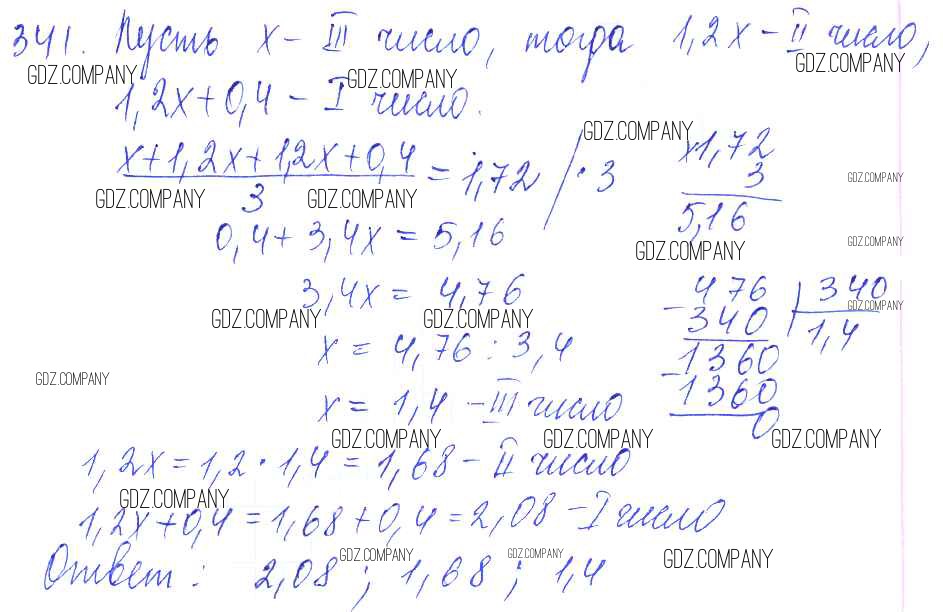 341. Пусть x – III число, тогда 1,2x – II число,
GDZ.COMPANY GDZ.COMPANY GDZ.COMPANY
1,2x+0,4 – I число.
GDZ.COMPANY
x+1,2x+1,2x+0,4 / 3 = 1,72 / · 3
×1,72
3
5,16
GDZ.COMPANY GDZ.COMPANY GDZ.COMPANY
0,4+3,4x = 5,16
GDZ.COMPANY GDZ.COMPANY
3,4x = 4,76
GDZ.COMPANY GDZ.COMPANY GDZ.COMPANY
x = 4,76 : 3,4
476 | 340
– 340 | 1,4
1360
– 1360
0
GDZ.COMPANY
x = 1,4 – III число
GDZ.COMPANY GDZ.COMPANY GDZ.COMPANY
1,2x = 1,2 · 1,4 = 1,68 – II число
GDZ.COMPANY
1,2x+0,4 = 1,68+0,4 = 2,08 – I число
GDZ.COMPANY GDZ.COMPANY GDZ.COMPANY
Ответ: 2,08; 1,68; 1,4